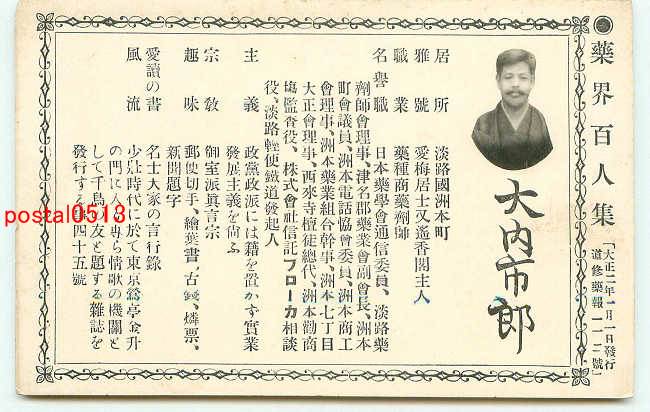 ●藥界百人集
「大正二年一月一日發行
道修藥報一一二號」
大內市郎
居所　淡路國洲本町
雅號　愛梅居士又遙香閣主人
職業　藥種商藥劑師
名譽職　日本藥學會通信委員、淡路藥
劑師會理事、津名郡藥業會副會長、洲本
町會議員、洲本電話協會委員、洲本商工
會理事、洲本藥業組合幹事、洲本七丁目
大正會理事、西來寺檀徒總代、洲本勸商
場監査役、株式會社信託ブローカ相談
役、淡路輕便鐵道發起人
主義　政黨政派には籍を置かず實業
發展主義を尙ふ
宗敎　御室派眞言宗
趣味　郵便切手、繪葉書、古錢、燐票、
新聞題字
愛讀の書　名士大家の言行錄
風流　少壯時代に於て東京鶯亭金升
の門に入り專ら情歌の機關と
して千鳥の友と題する雜誌を
發行する事四十五號
postal0513